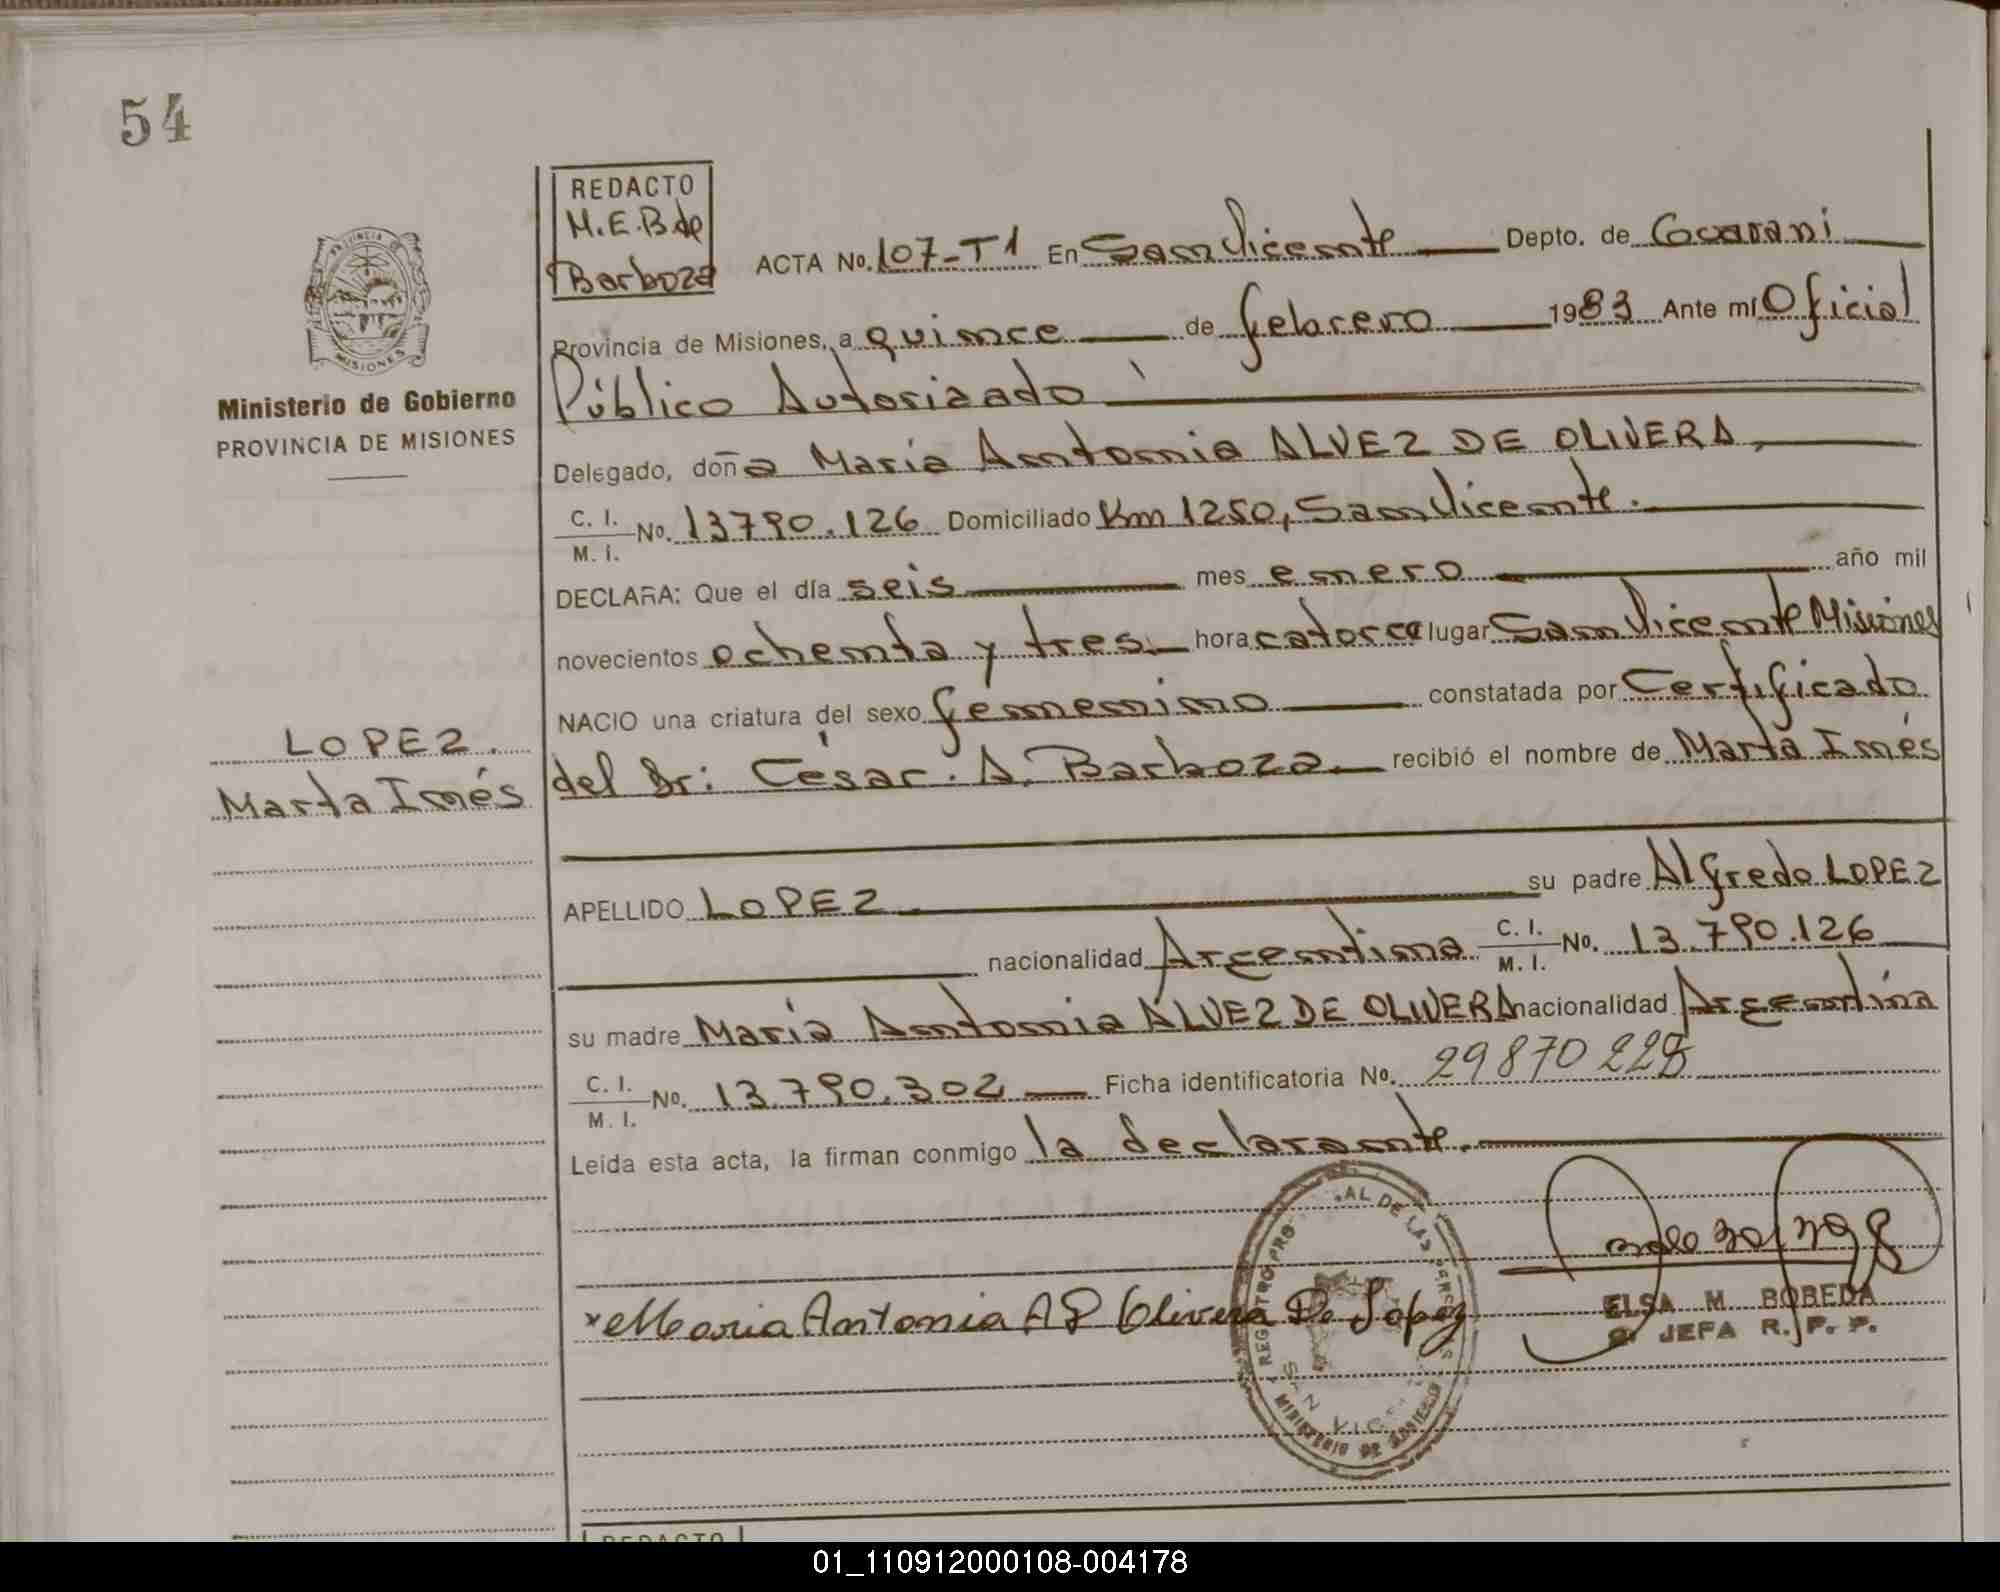 54
REDACTO
M.E.B de
Barboza
ACTA No. 107-T1 En San Vicente Depto. de Guarani
Provincia de Misiones, a quince de febrero 1983 Ante mí Oficial
Público Autorizado
Ministerio de Gobierno
PROVINCIA DE MISIONES
Delegado, doña María Antonia ALVEZ DE OLIVERA,
C. I.
M. I. No. 13790.126 Domiciliado Km 1250, San Vicente.
DECLARA: Que el día seis mes enero año mil
novecientos ochenta y tres hora catorce lugar San Vicente Misiones
NACIO una criatura del sexo femenino constatada por Certificado
del Dr: César. A. Barboza recibió el nombre de Marta Inés
LOPEZ.
Marta Inés
APELLIDO LOPEZ su padre Alfredo LOPEZ
nacionalidad Argentina C. I. M. I. No. 13.790.126
su madre María Antonia ALVEZ DE OLIVERA nacionalidad Argentina
C. I.
M. I. No. 13.790.302 Ficha identificatoria No. 29870228
Leida esta acta, la firman conmigo la declarante.
Maria Antonia AD Olivera De Lopez
ELSA M BOBEDA
JEFA R. P. P.
MINISTERIO DE GOBIERNO
REDACTO
01_110912000108-004178